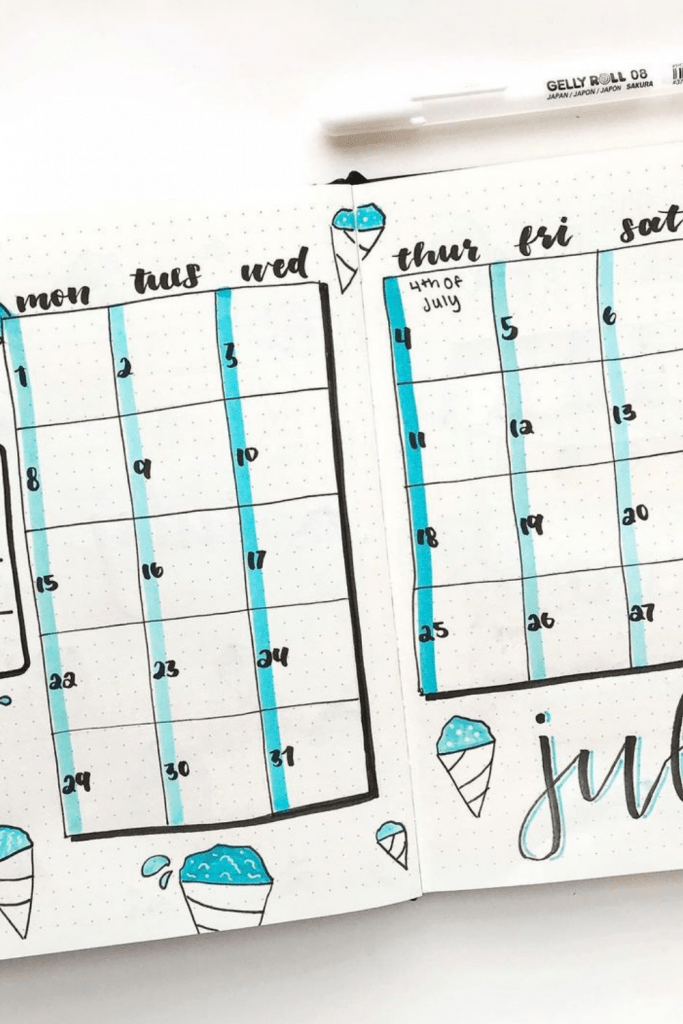 GELLY ROLL 08
JAPAN / JAPON / JAPON SAKURA
mon tues wed thur fri sat
4th of
July
1 2 3 4 5 6
8 9 10 11 12 13
15 16 17 18 19 20
22 23 24 25 26 27
29 30 31
jul